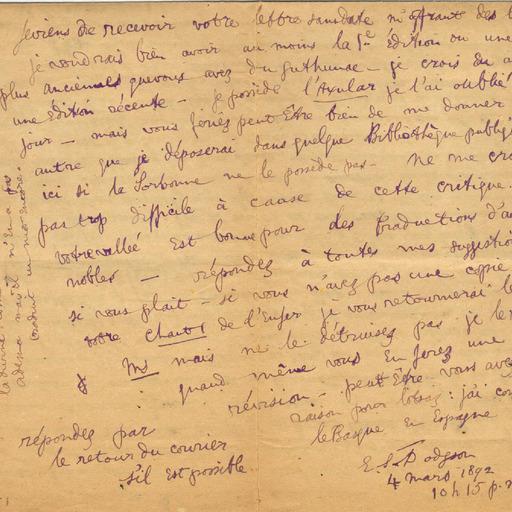 Je viens de recevoir votre lettre sans date m'offrant des
je voudrais bien avoir au moins la 1re édition ou une
plus anciennes que vous avez du Guthunac - je crois
une édition récente - je possède l'Axular je l'ai oublié
jour - mais vous feriez peut être bien de me donner
autre que je déposerai dans quelque Bibliothèque
ici si la Sorbonne ne le possède pas - Ne me
pas trop difficile à cause de cette critique.
votre vallée est bonne pour des traductions
nobles - répondez à toutes mes
si vous plait - si vous n'avez pas une copie
votre Chant 1 de l'Enfer je vous retournerai
Ms mais ne le détruisez pas je
quand même vous en ferez une
révision - peut être vous
raison pour : j'ai
le Basque en Espagne
répondez par
le retour du courrier
s'il est possible
E. S. Dodgson
4 mars 1892
10 h 15 p.
la
mais il n'en a pas
traduit un mot encore.